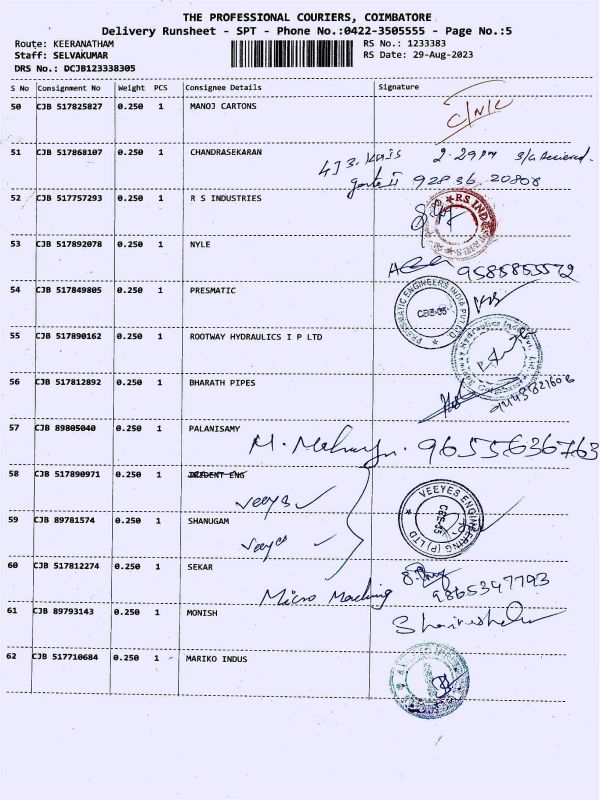 THE PROFESSIONAL COURIERS, COIMBATORE
Delivery Runsheet - SPT - Phone No.:0422-3505555 - Page No.:5
Route: KEERANATHAM
RS No.: 1233383
Staff: SELVAKUMAR
RS Date: 29-Aug-2023
DRS No.: DCJB123338305
S No Consignment No Weight PCS Consignee Details Signature
50 CJB 517825827 0.250 1 MANOJ CARTONS
C/N/C
51 CJB 517868107 0.250 1 CHANDRASEKARAN
2.29pm
92836 20808
52 CJB 517757293 0.250 1 R S INDUSTRIES
RS INDUS
53 CJB 517892078 0.250 1 NYLE
9585855572
54 CJB 517849805 0.250 1 PRESMATIC
PRESMATIC ENGINEERS INDIA PVT LTD
CBE-35
55 CJB 517890162 0.250 1 ROOTWAY HYDRAULICS I P LTD
56 CJB 517812892 0.250 1 BHARATH PIPES
9445821606
57 CJB 89805040 0.250 1 PALANISAMY
M. 9655636763
58 CJB 517890971 0.250 1 ENG
Veeyes
VEEYES ENGINEERING (P) LTD
CBE-35
59 CJB 89781574 0.250 1 SHANUGAM
Veeyes
60 CJB 517812274 0.250 1 SEKAR
9865347793
Micro Maching
61 CJB 89793143 0.250 1 MONISH
62 CJB 517710684 0.250 1 MARIKO INDUS